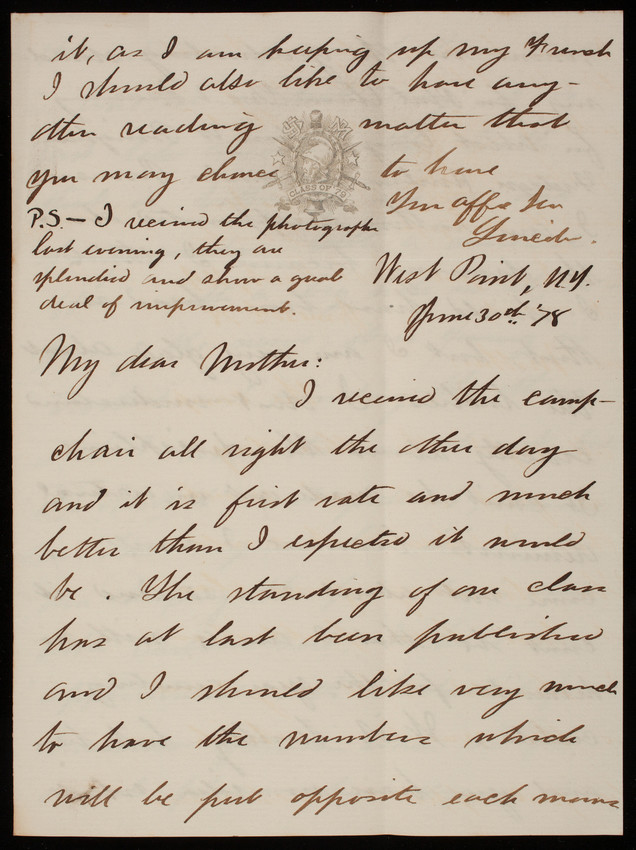 it, as I am keeping up my French
I should also like to have any-
other reading matter that
you may chance to have
Your affte Son
Lincoln.
CLASS OF '79
P.S. — I received the photographs
last evening, they are
splendid and show a great
deal of improvement.
West Point, N.Y.
June 30th '78
My dear Mother:
I received the camp-
chair all right the other day
and it is first rate and much
better than I expected it would
be. The standing of our class
has at last been published
and I should like very much
to have the numbers which
will be put opposite each name